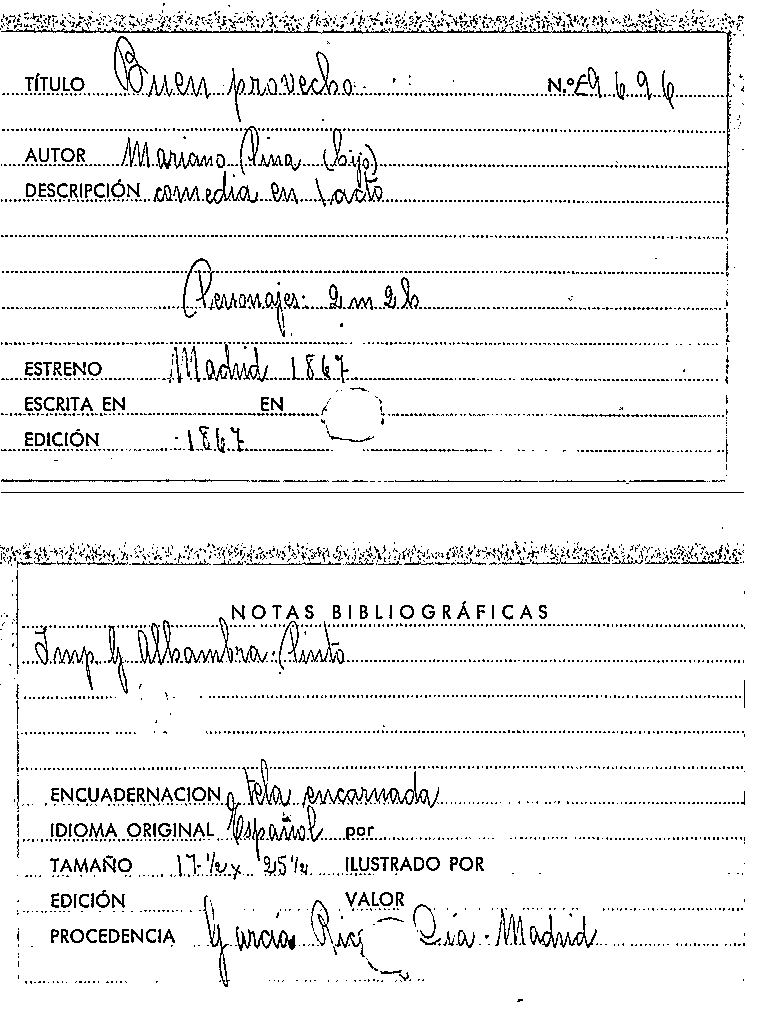 TÍTULO Buen provecho N.º 9696
AUTOR Mariano Pina (hijo)
DESCRIPCIÓN comedia en 1 acto
Personajes: 2 m 2 h
ESTRENO Madrid 1867
ESCRITA EN EN
EDICIÓN 1867
NOTAS BIBLIOGRÁFICAS
Imp G Alhambra. Pinto
ENCUADERNACION tela encarnada
IDIOMA ORIGINAL Español por
TAMAÑO 17-½ x 25 ILUSTRADO POR
EDICIÓN VALOR
PROCEDENCIA García Rico Cía. Madrid